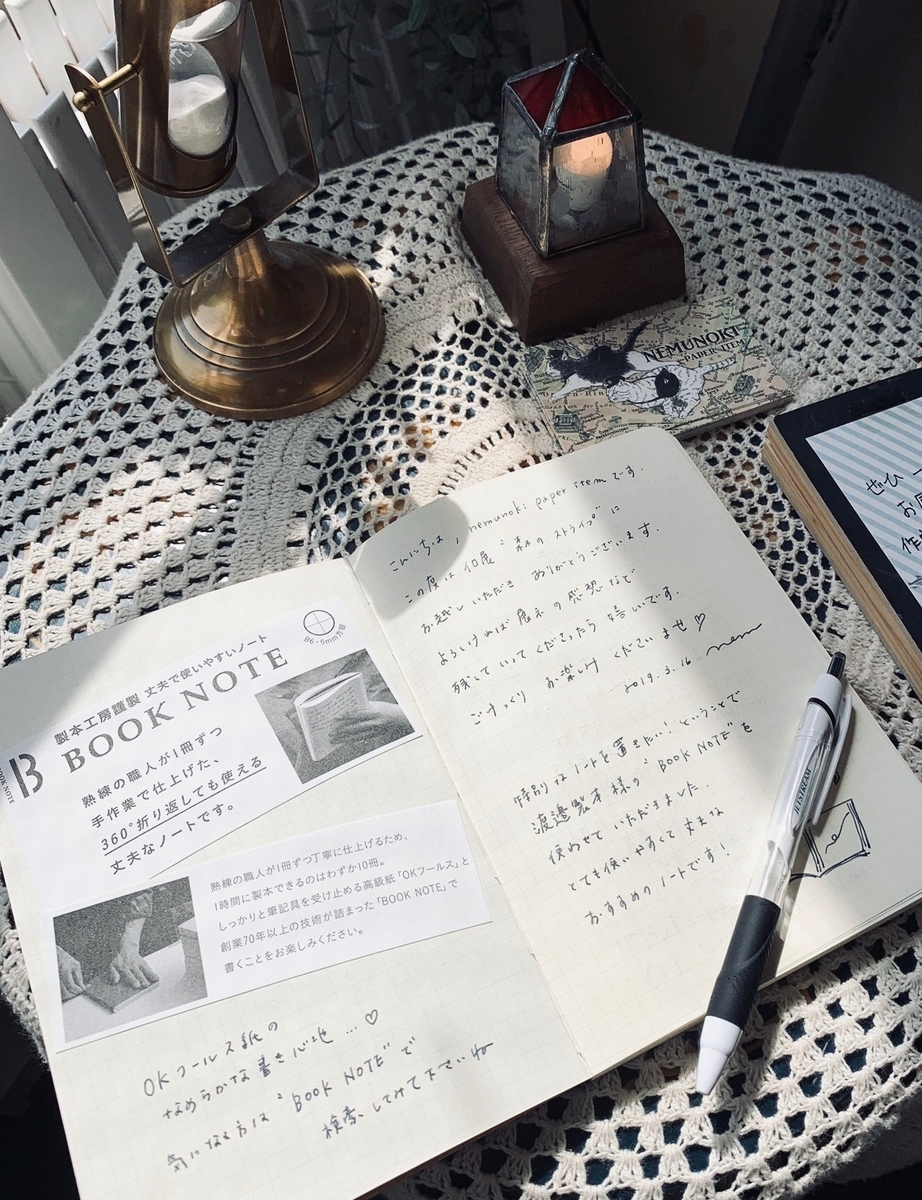 NEMUNOKI
PAPER ITEM
ぜひ
お
作
こんにちは, nemunoki paper itemです.
この度は 個展 "森の ストライプ" に
お越しいただき ありがとうございます.
よろしければ 展示の 感想など
残して いって くださったら 嬉しいです.
ごゆっくり お楽しみ くださいませ♡
2019.3.16 nem
特別な ノートを 置きたい! ということで
渡邊製本様の "BOOK NOTE" を
使わせて いただきました.
とても使いやすくて 丈夫な
おすすめの ノートです!
B6・5mm方眼
製本工房謹製 丈夫で使いやすいノート
BOOK NOTE
B
BOOK NOTE
熟練の職人が1冊ずつ
手作業で仕上げた、
360°折り返しても使える
丈夫なノートです。
熟練の職人が1冊ずつ丁寧に仕上げるため、
1時間に製本できるのはわずか10冊。
しっかりと筆記具を受け止める高級紙「OKフールス」と
創業70年以上の技術が詰まった「BOOK NOTE」で
書くことをお楽しみください。
OKフールス紙の
なめらかな 書き心地 … ♡
気になる方は "BOOK NOTE" で
検索 してみて 下さいね
JETSTREAM